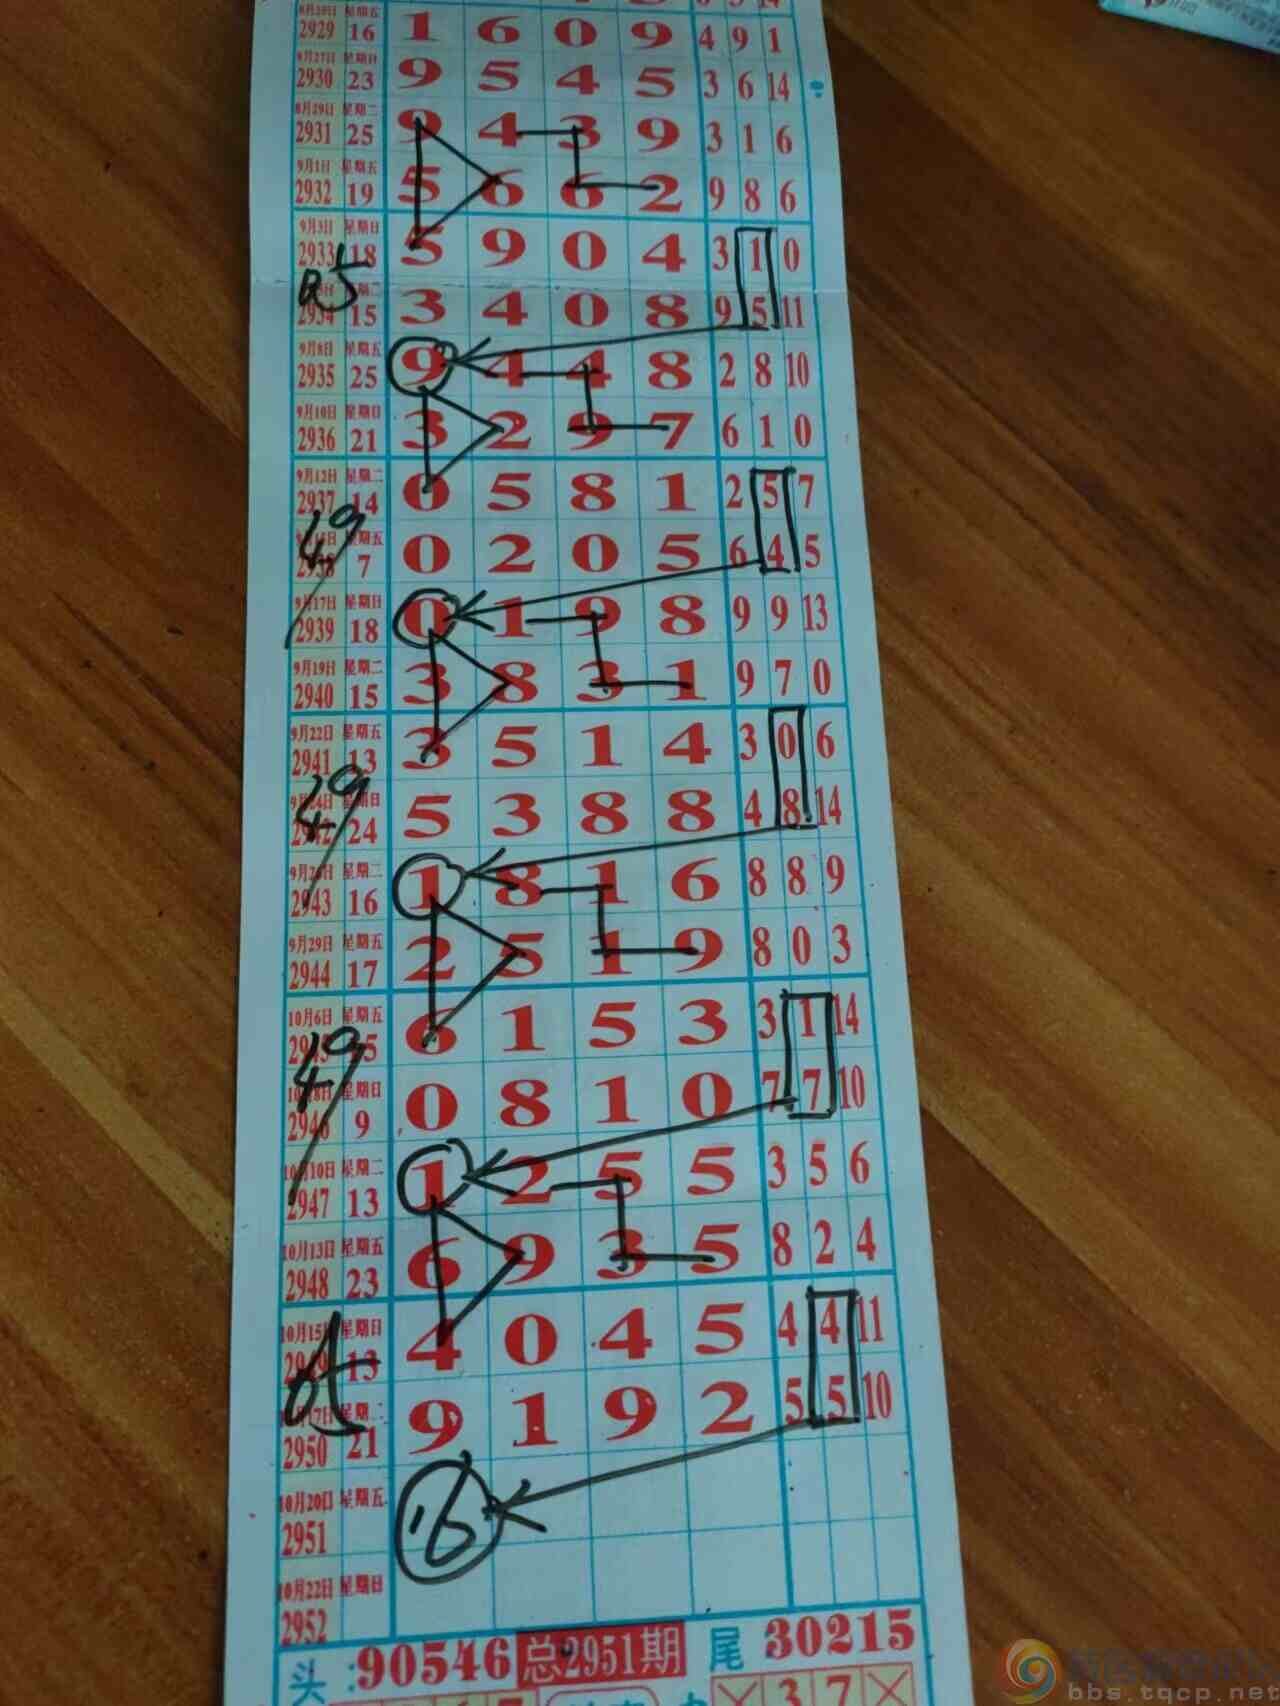 2929 16 1 6 0 9 4 9 1
9月27日 星期日
2930 23 9 5 4 5 3 6 14
8月29日 星期二
2931 25 9 4 3 9 3 1 6
9月1日 星期五
2932 19 5 6 6 2 9 8 6
9月3日 星期日
2933 18 5 9 0 4 3 1 0
05
15 3 4 0 8 9 5 11
9月8日 星期五
2935 25 9 4 4 8 2 8 10
9月10日 星期日
2936 21 3 2 9 7 6 1 0
9月12日 星期二
2937 14 0 5 8 1 2 5 7
49
星期五
2938 7 0 2 0 5 6 4 5
9月17日 星期日
2939 18 0 1 9 8 9 9 13
9月19日 星期二
2940 15 3 8 3 1 9 7 0
9月22日 星期五
2941 13 3 5 1 4 3 0 6
49
9月24日 星期日
2942 24 5 3 8 8 4 8 14
9月26日 星期二
2943 16 1 8 1 6 8 8 9
9月29日 星期五
2944 17 2 5 1 9 8 0 3
10月6日 星期五
2945 15 6 1 5 3 3 1 14
49
10月8日 星期日
2946 9 0 8 1 0 7 7 10
10月10日 星期二
2947 13 1 2 5 5 3 5 6
10月13日 星期五
2948 23 6 9 3 5 8 2 4
10月15日 星期日
2949 13 4 0 4 5 4 4 11
星期二
2950 21 9 1 9 2 5 5 10
10月20日 星期五
2951 16
10月22日 星期日
2952
头:90546 总2951期 尾 30215
3 7
bbs.tqcp.net